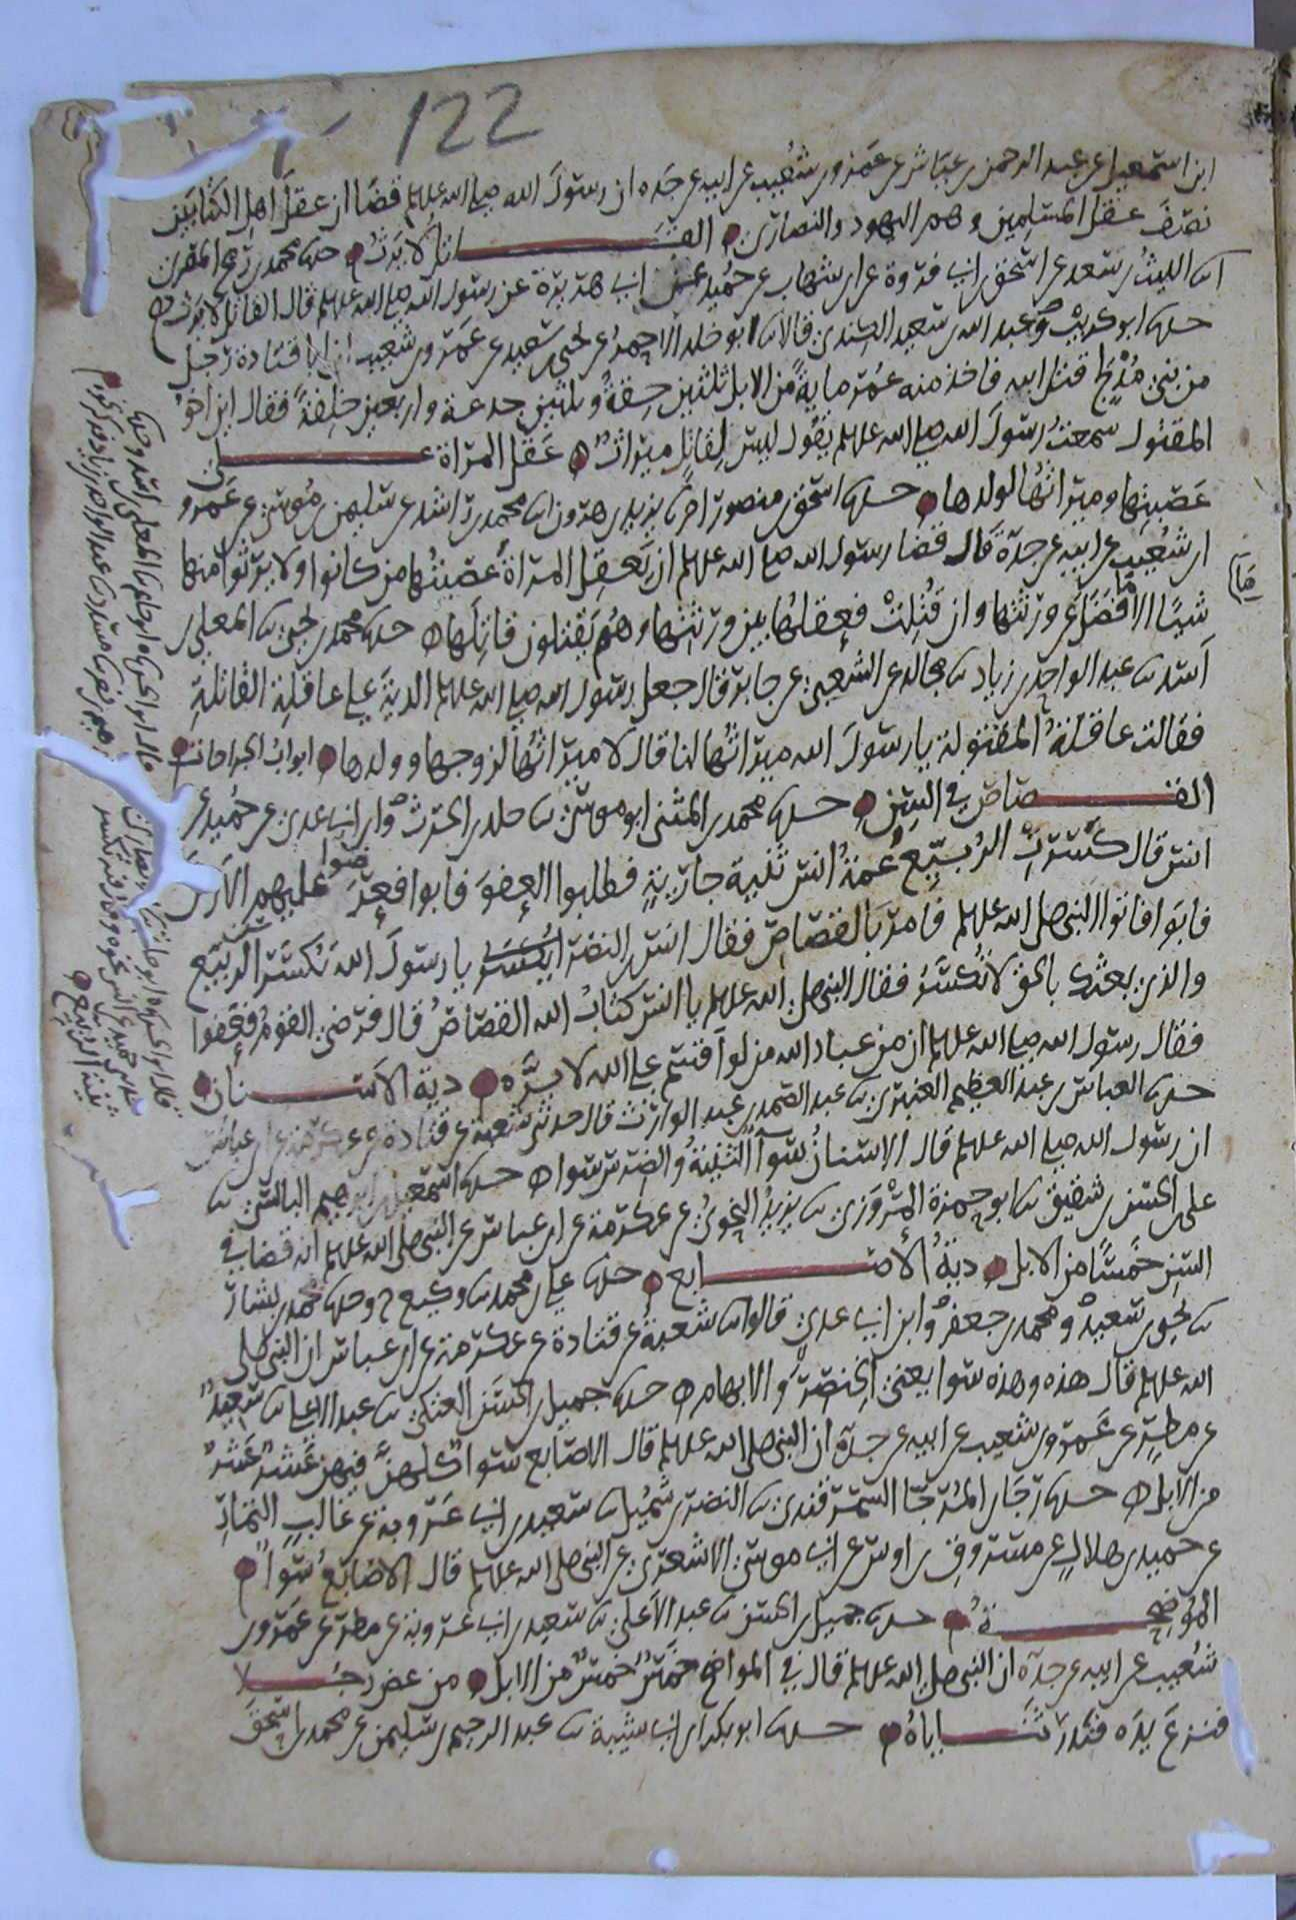 122
ابن اسمعيل عن عبد الرحمن بن عياش عن عمرو بن شعيب عن ابيه عن جده ان رسول الله صلى الله عليه وسلم قضا ان عقل اهل الكتابين
نصف عقل المسلمين وهم اليهود والنصارى القاتل لا يرث حدثنا محمد بن رمح المصري
انا الليث بن سعد عن اسحق بن ابي فروة عن ابن شهاب عن حميد عن ابي هريرة عن رسول الله صلى الله عليه وسلم قال القاتل لا يرث
حدثنا ابو كريب وعبد الله بن سعيد الكندي قالا ثنا ابو خلد الاحمر عن يحيى بن سعيد عن عمرو بن شعيب ان ابا قتادة رجل
من بني مدلج قتل ابنه فاخذ منه عمر ماية من الابل ثلثين حقة وثلثين جدعة واربعين خلفة فقال اين اخو
المقتول سمعت رسول الله صلى الله عليه وسلم يقول ليس لقاتل ميراث عقل المراة على
عصبتها وميراثها لولدها حدثنا اسحق بن منصور اخبرنا يزيد بن هرون انا محمد بن راشد عن سليمن بن موسى عن عمرو
ابن شعيب عن ابيه عن جده قال قضا رسول الله صلى الله عليه وسلم ان يعقل المراة عصبتها من كانوا ولا يرثوا منها
شيئا الا ما فضل عن ورثتها وان قتلت فعقلها بين ورثتها وهم يقتلون قاتلها حدثنا محمد بن يحيى ثنا المعلى بن
اسد ثنا عبد الواحد بن زياد ثنا مجالد عن الشعبي عن جابر قال جعل رسول الله صلى الله عليه وسلم الدية على عاقلة القاتلة
فقالت عاقلة المقتولة يا رسول الله ميراثها لنا قال لا ميراثها لزوجها وولدها ابواب الجراحات
القصاص في السن حدثنا محمد بن المثنى ابو موسى ثنا خلد بن الحرث وابن ابي عدي عن حميد عن
انس قال كسرت الربيع عمة انس ثنية جارية فطلبوا العفو فابوا فعرضوا عليهم الارش
فابوا فاتوا النبي صلى الله عليه وسلم فامر بالقصاص فقال انس بن النضر يا رسول الله تكسر ثنية الربيع
والذي بعثك بالحق لا تكسر فقال النبي صلى الله عليه وسلم يا انس كتاب الله القصاص قال فرضي القوم فعفوا
فقال رسول الله صلى الله عليه وسلم ان من عباد الله من لو اقسم على الله لابره دية الاسنان
حدثنا العباس بن عبد العظيم العنبري ثنا عبد الصمد بن عبد الوارث قال حدثني شعبة عن قتادة عن عكرمة عن ابن عباس
ان رسول الله صلى الله عليه وسلم قال الاسنان سوآ الثنية والضرس سوا حدثنا اسمعيل بن ابرهيم البالسي ثنا
علي بن الحسن بن شقيق ثنا ابو حمزة المروزي ثنا يزيد النحوي عن عكرمة عن ابن عباس عن النبي صلى الله عليه وسلم انه قضا في
السن خمسا من الابل دية الاصابع حدثنا علي بن محمد ثنا وكيع ح وحدثنا محمد بن بشار
ثنا يحيى بن سعيد ومحمد بن جعفر وابن ابي عدي قالوا ثنا شعبة عن قتادة عن عكرمة عن ابن عباس ان النبي صلى
الله عليه وسلم قال هذه وهذه سوا يعني الخنصر والابهام حدثنا جميل بن الحسن العتكي ثنا عبد الاعلى ثنا سعيد
عن مطر عن عمرو بن شعيب عن ابيه عن جده ان النبي صلى الله عليه وسلم قال الاصابع سوا كلهن فيهن عشر عشر
من الابل حدثنا رجا بن المرجا السمرقندي ثنا النضر بن شميل ثنا سعيد بن ابي عروبة عن غالب التمار
عن حميد بن هلال عن مسروق بن اوس عن ابي موسى الاشعري عن النبي صلى الله عليه وسلم قال الاصابع سوا
الموضحة حدثنا جميل بن الحسن ثنا عبد الاعلى ثنا سعيد بن ابي عروبة عن مطر عن عمرو بن
شعيب عن ابيه عن جده ان النبي صلى الله عليه وسلم قال في المواضح خمس خمس من الابل من عض رجلا
فنزع يده فندر ثناياه حدثنا ابو بكر بن ابي شيبة ثنا عبد الرحيم بن سليمن عن محمد بن اسحق